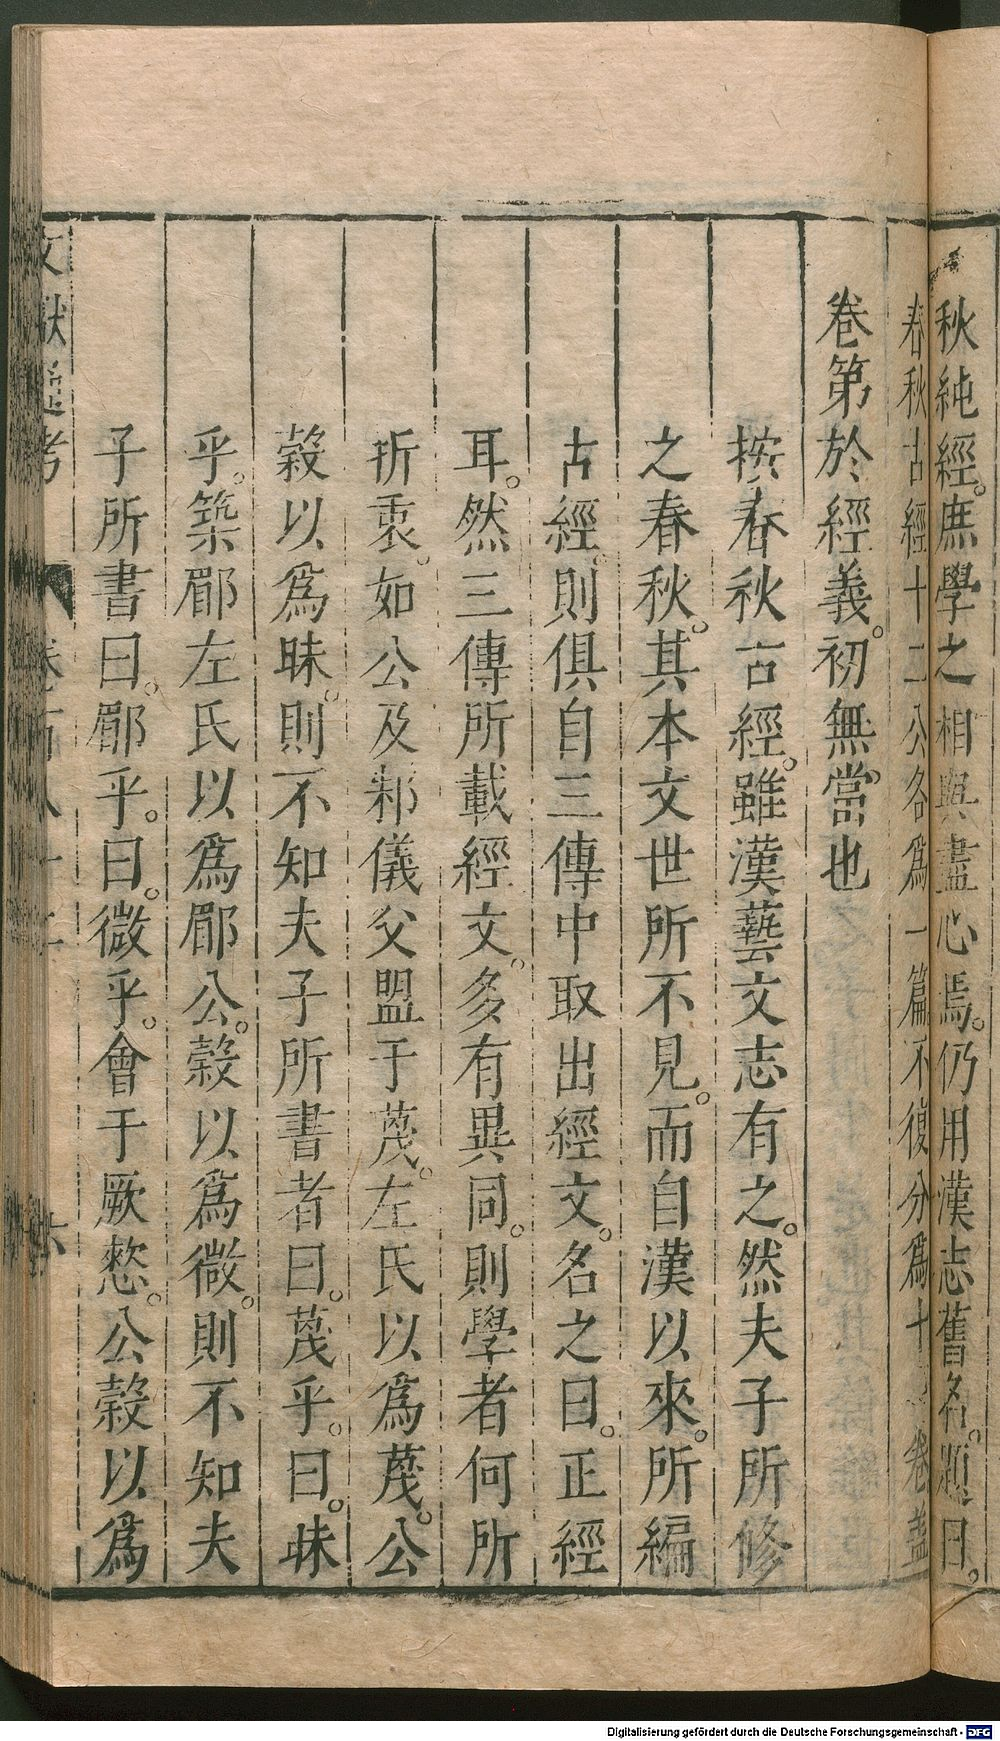 秋純經。庶學之相與盡心焉。仍用漢志舊名。題曰。
春秋古經十二公各爲一篇不復分爲十一卷蓋
卷第於經義。初無當也
按春秋古經。雖漢藝文志有之。然夫子所修
之春秋。其本文世所不見。而自漢以來。所編
古經。則俱自三傳中取出經文。名之曰。正經
耳。然三傳所載經文。多有異同。則學者何所
折衷。如公及邾儀父盟于蔑。左氏以爲蔑。公
穀以爲昧。則不知夫子所書者曰。蔑乎。曰。昧
乎。築郿左氏以爲郿公。穀以爲微。則不知夫
子所書曰。郿乎。曰。微乎。會于厥憖。公穀以爲
文獻通考 卷百八十二 六
Digitalisierung gefördert durch die Deutsche Forschungsgemeinschaft - DFG